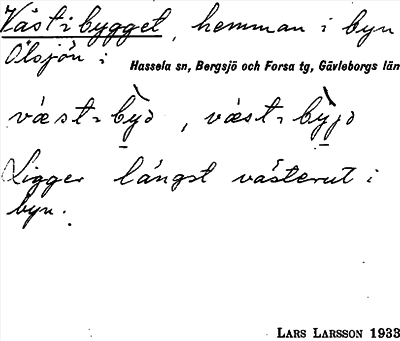 Väst i bygget, hemman i byn
Ölsjön i
Hassela sn, Bergsjö och Forsa tg, Gävleborgs län
Ligger längst västerut i
byn.
LARS LARSSON 1933